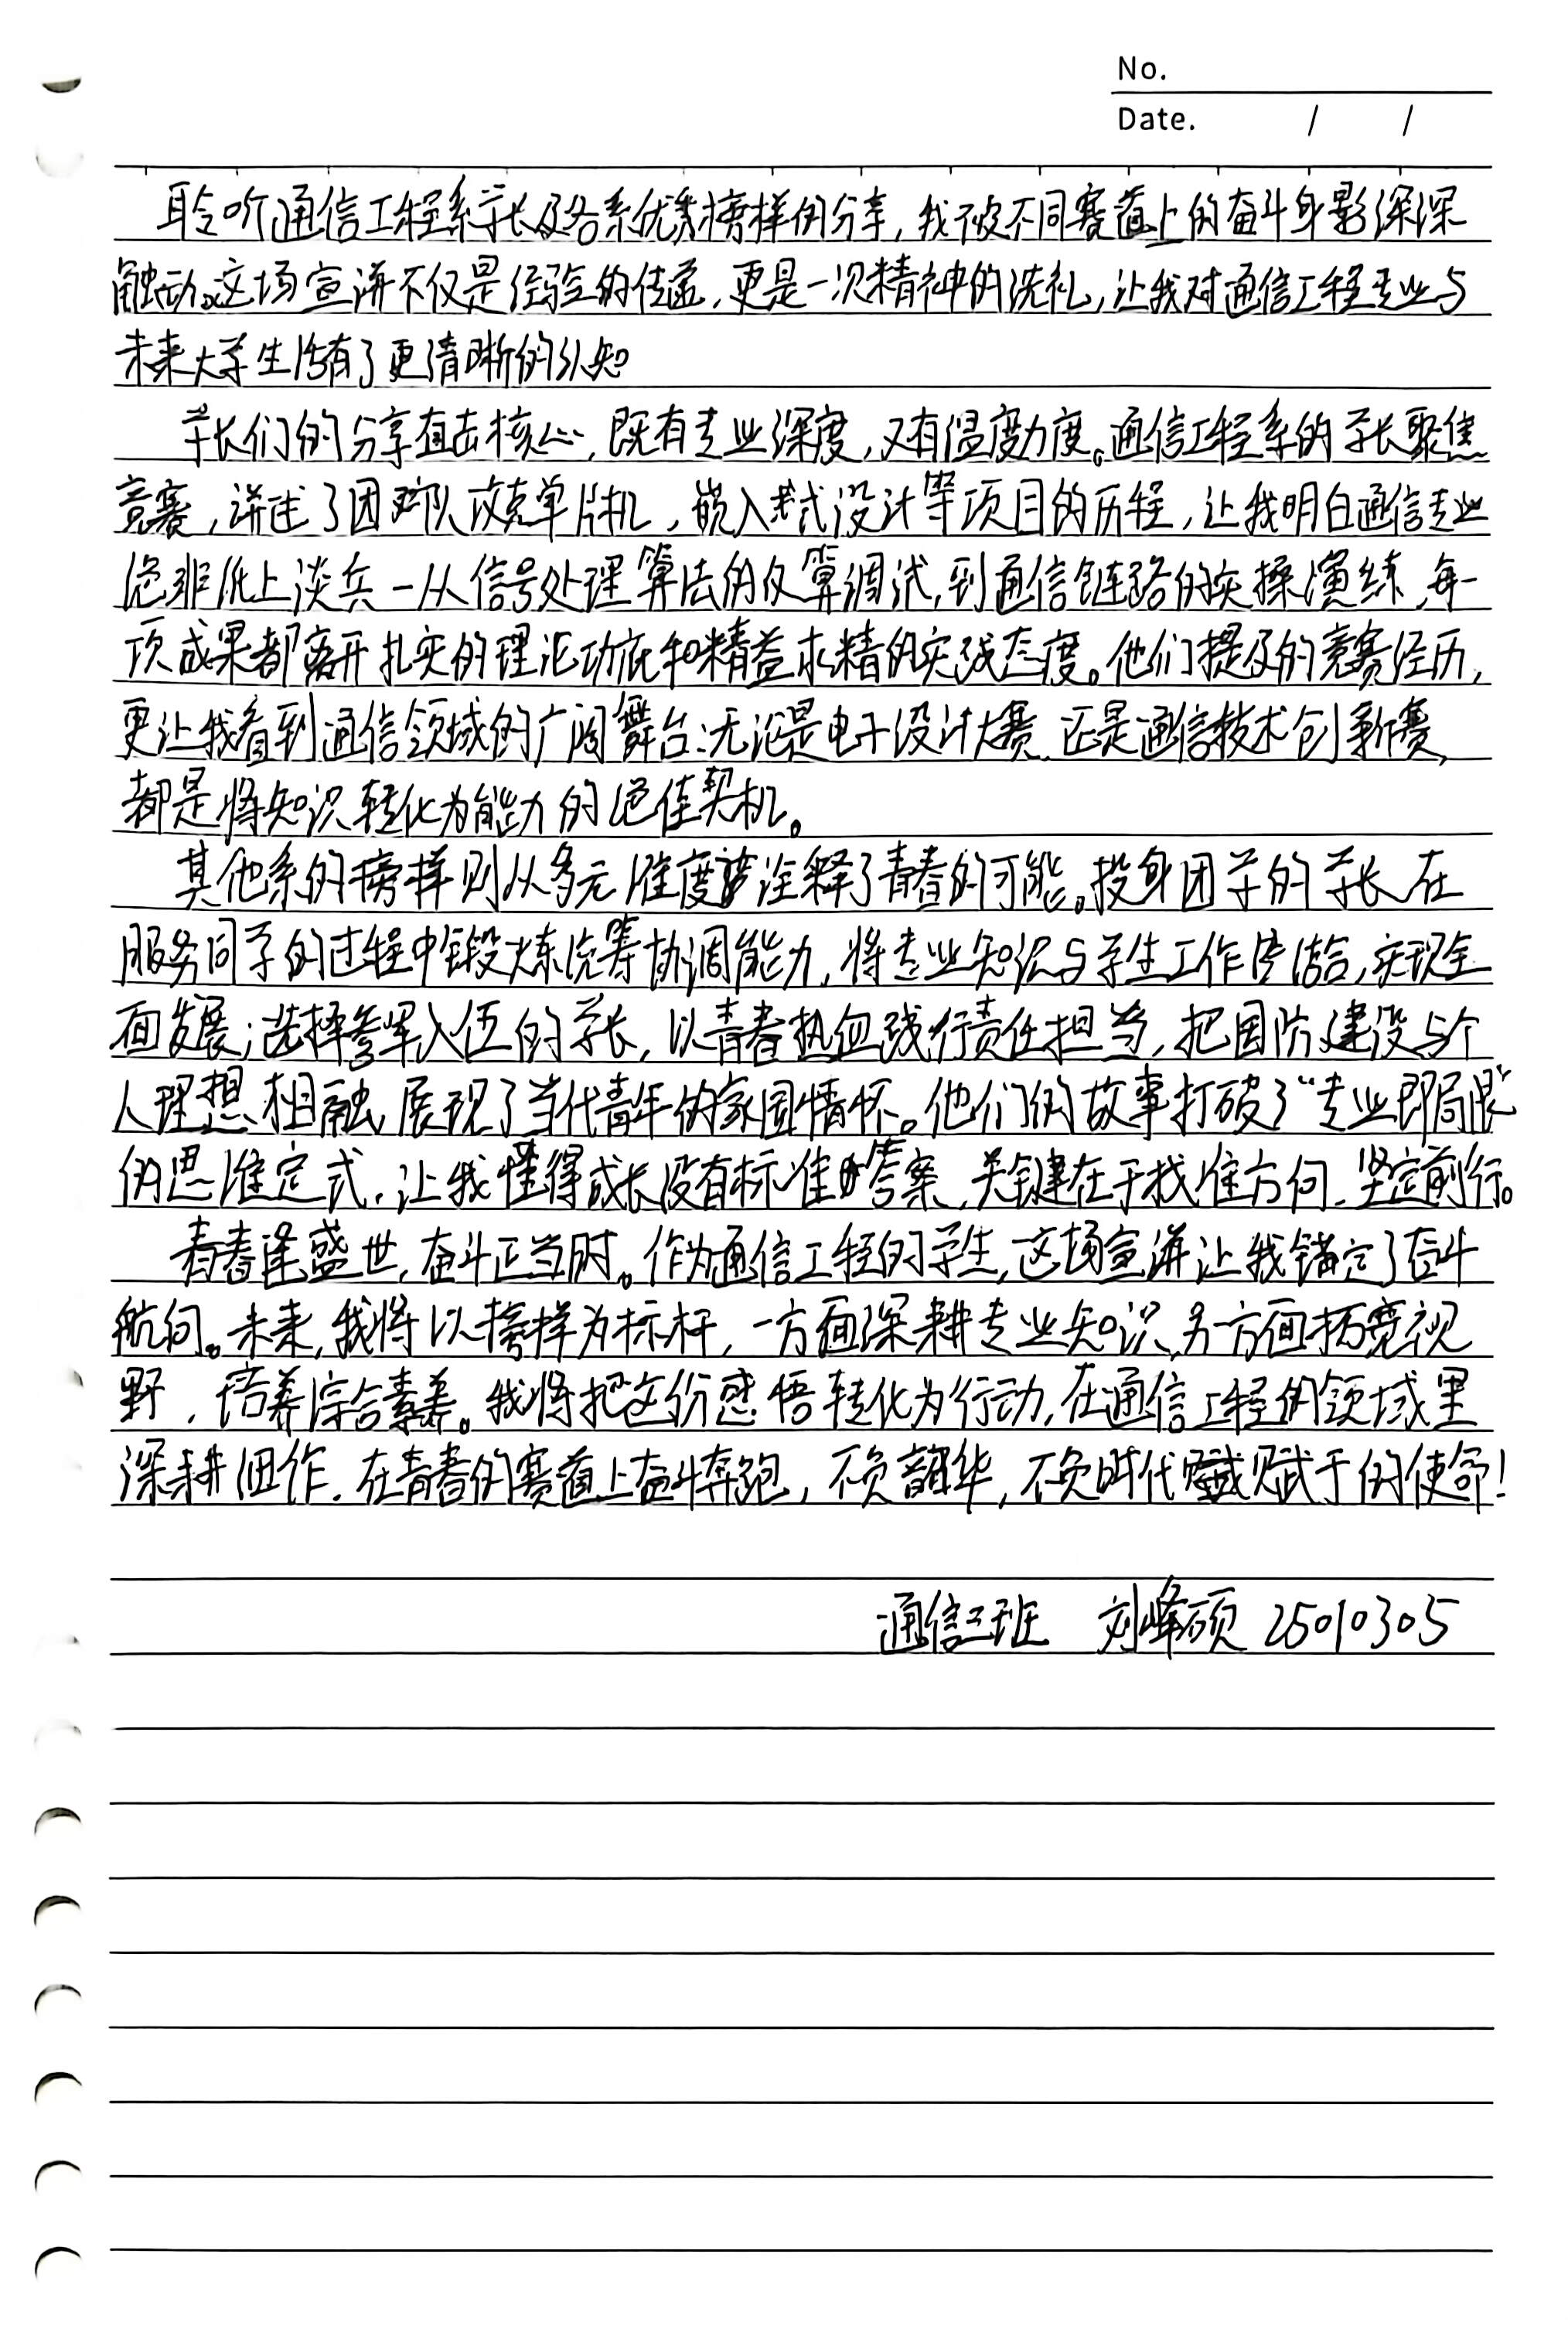 No.
Date. / /
聆听通信工程系学长及各系优秀榜样的分享，我被不同赛道上的奋斗身影深深
触动。这场宣讲不仅是经验的传递，更是一次精神的洗礼，让我对通信工程专业与
未来大学生活有了更清晰的认知
学长们的分享直击核心，既有专业深度，又有温度力度。通信工程系的学长聚焦
竞赛，讲述了团队攻克单片机，嵌入式设计等项目的历程，让我明白通信专业
绝非纸上谈兵—从信号处理算法的仅算调试，到通信链路的实操演练，每一
项成果都离开扎实的理论功底和精益求精的实践态度。他们提及的竞赛经历，
更让我看到通信领域的广阔舞台：无论是电子设计大赛，还是通信技术创新赛，
都是将知识转化为能力的绝佳契机。
其他系的榜样则从多元维度诠释了青春的可能。投身团学的学长在
服务同学的过程中锻炼统筹协调能力，将专业知识与学生工作结合，实现全
面发展；选择参军入伍的学长，以青春热血践行责任担当，把国防建设与个
人理想相融，展现了当代青年的家国情怀。他们的故事打破了“专业即局限”
的思维定式，让我懂得成长没有标准答案，关键在于找准方向，坚定前行。
青春逢盛世，奋斗正当时。作为通信工程的学生，这场宣讲让我锚定了奋斗
航向。未来，我将以榜样为标杆，一方面深耕专业知识，另一方面拓宽视
野，培养综合素养。我将把这份感悟转化为行动，在通信工程的领域里
深耕细作，在青春的赛道上奋斗奔跑，不负韶华，不负时代赋予的使命！
通信三班 刘峰硕 25010305